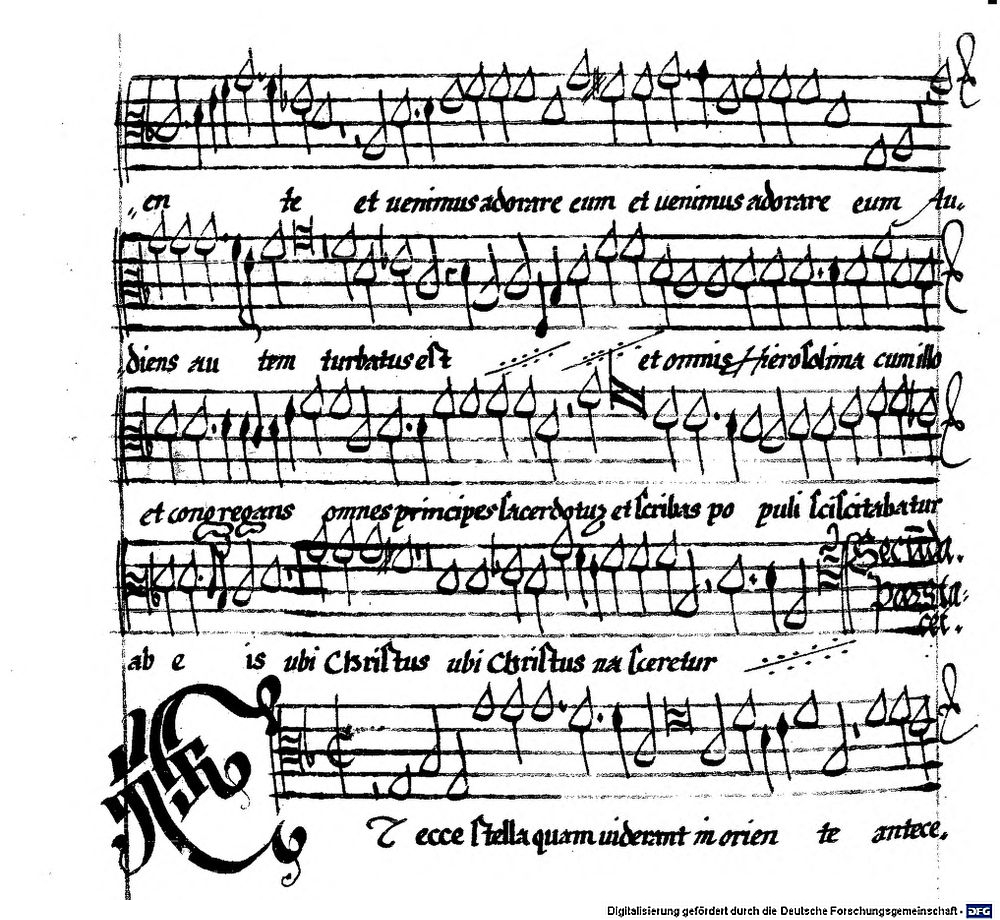 „en te et uenimus adorare eum et uenimus adorare eum Au.
diens au tem turbatus est et omnis Hierosolima cum illo
et congregans omnes principes sacerdotuʒ et scribas po puli sciscitabatur
Secūda.
pars ta-
cet.
ab e is ubi Christus ubi Christus na sceretur
ET ecce stella quam uiderant in orien te antece.
Digitalisierung gefördert durch die Deutsche Forschungsgemeinschaft - DFG